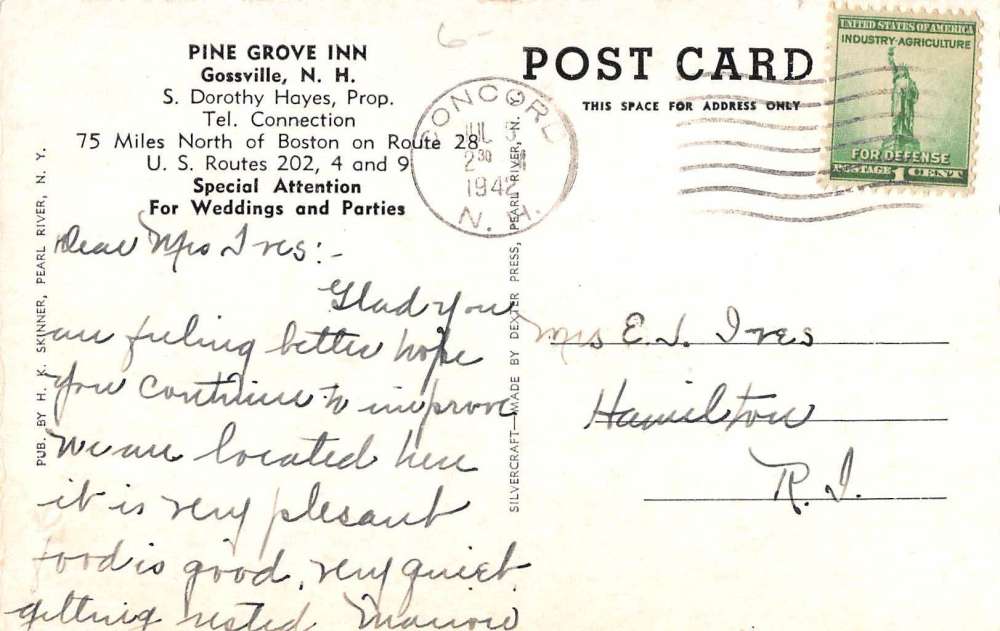 PINE GROVE INN
Gossville, N. H.
S. Dorothy Hayes, Prop.
Tel. Connection
75 Miles North of Boston on Route 28
U. S. Routes 202, 4 and 9
Special Attention
For Weddings and Parties
Dear Mrs Ives:-
Glad you
are feeling better hope
you continue to improve
We are located here
it is very plesant
food is good, very quiet
getting rested
PUB. BY H. K. SKINNER, PEARL RIVER, N. Y.
SILVERCRAFT—MADE BY DEXTER PRESS, PEARL RIVER, N.
6-
POST CARD
THIS SPACE FOR ADDRESS ONLY
CONCORD
JUL 5
2 30
1942
N. H.
UNITED STATES OF AMERICA
INDUSTRY·AGRICULTURE
FOR DEFENSE
POSTAGE 1 CENT
Mrs E. L. Ives
Hamilton
R. I.